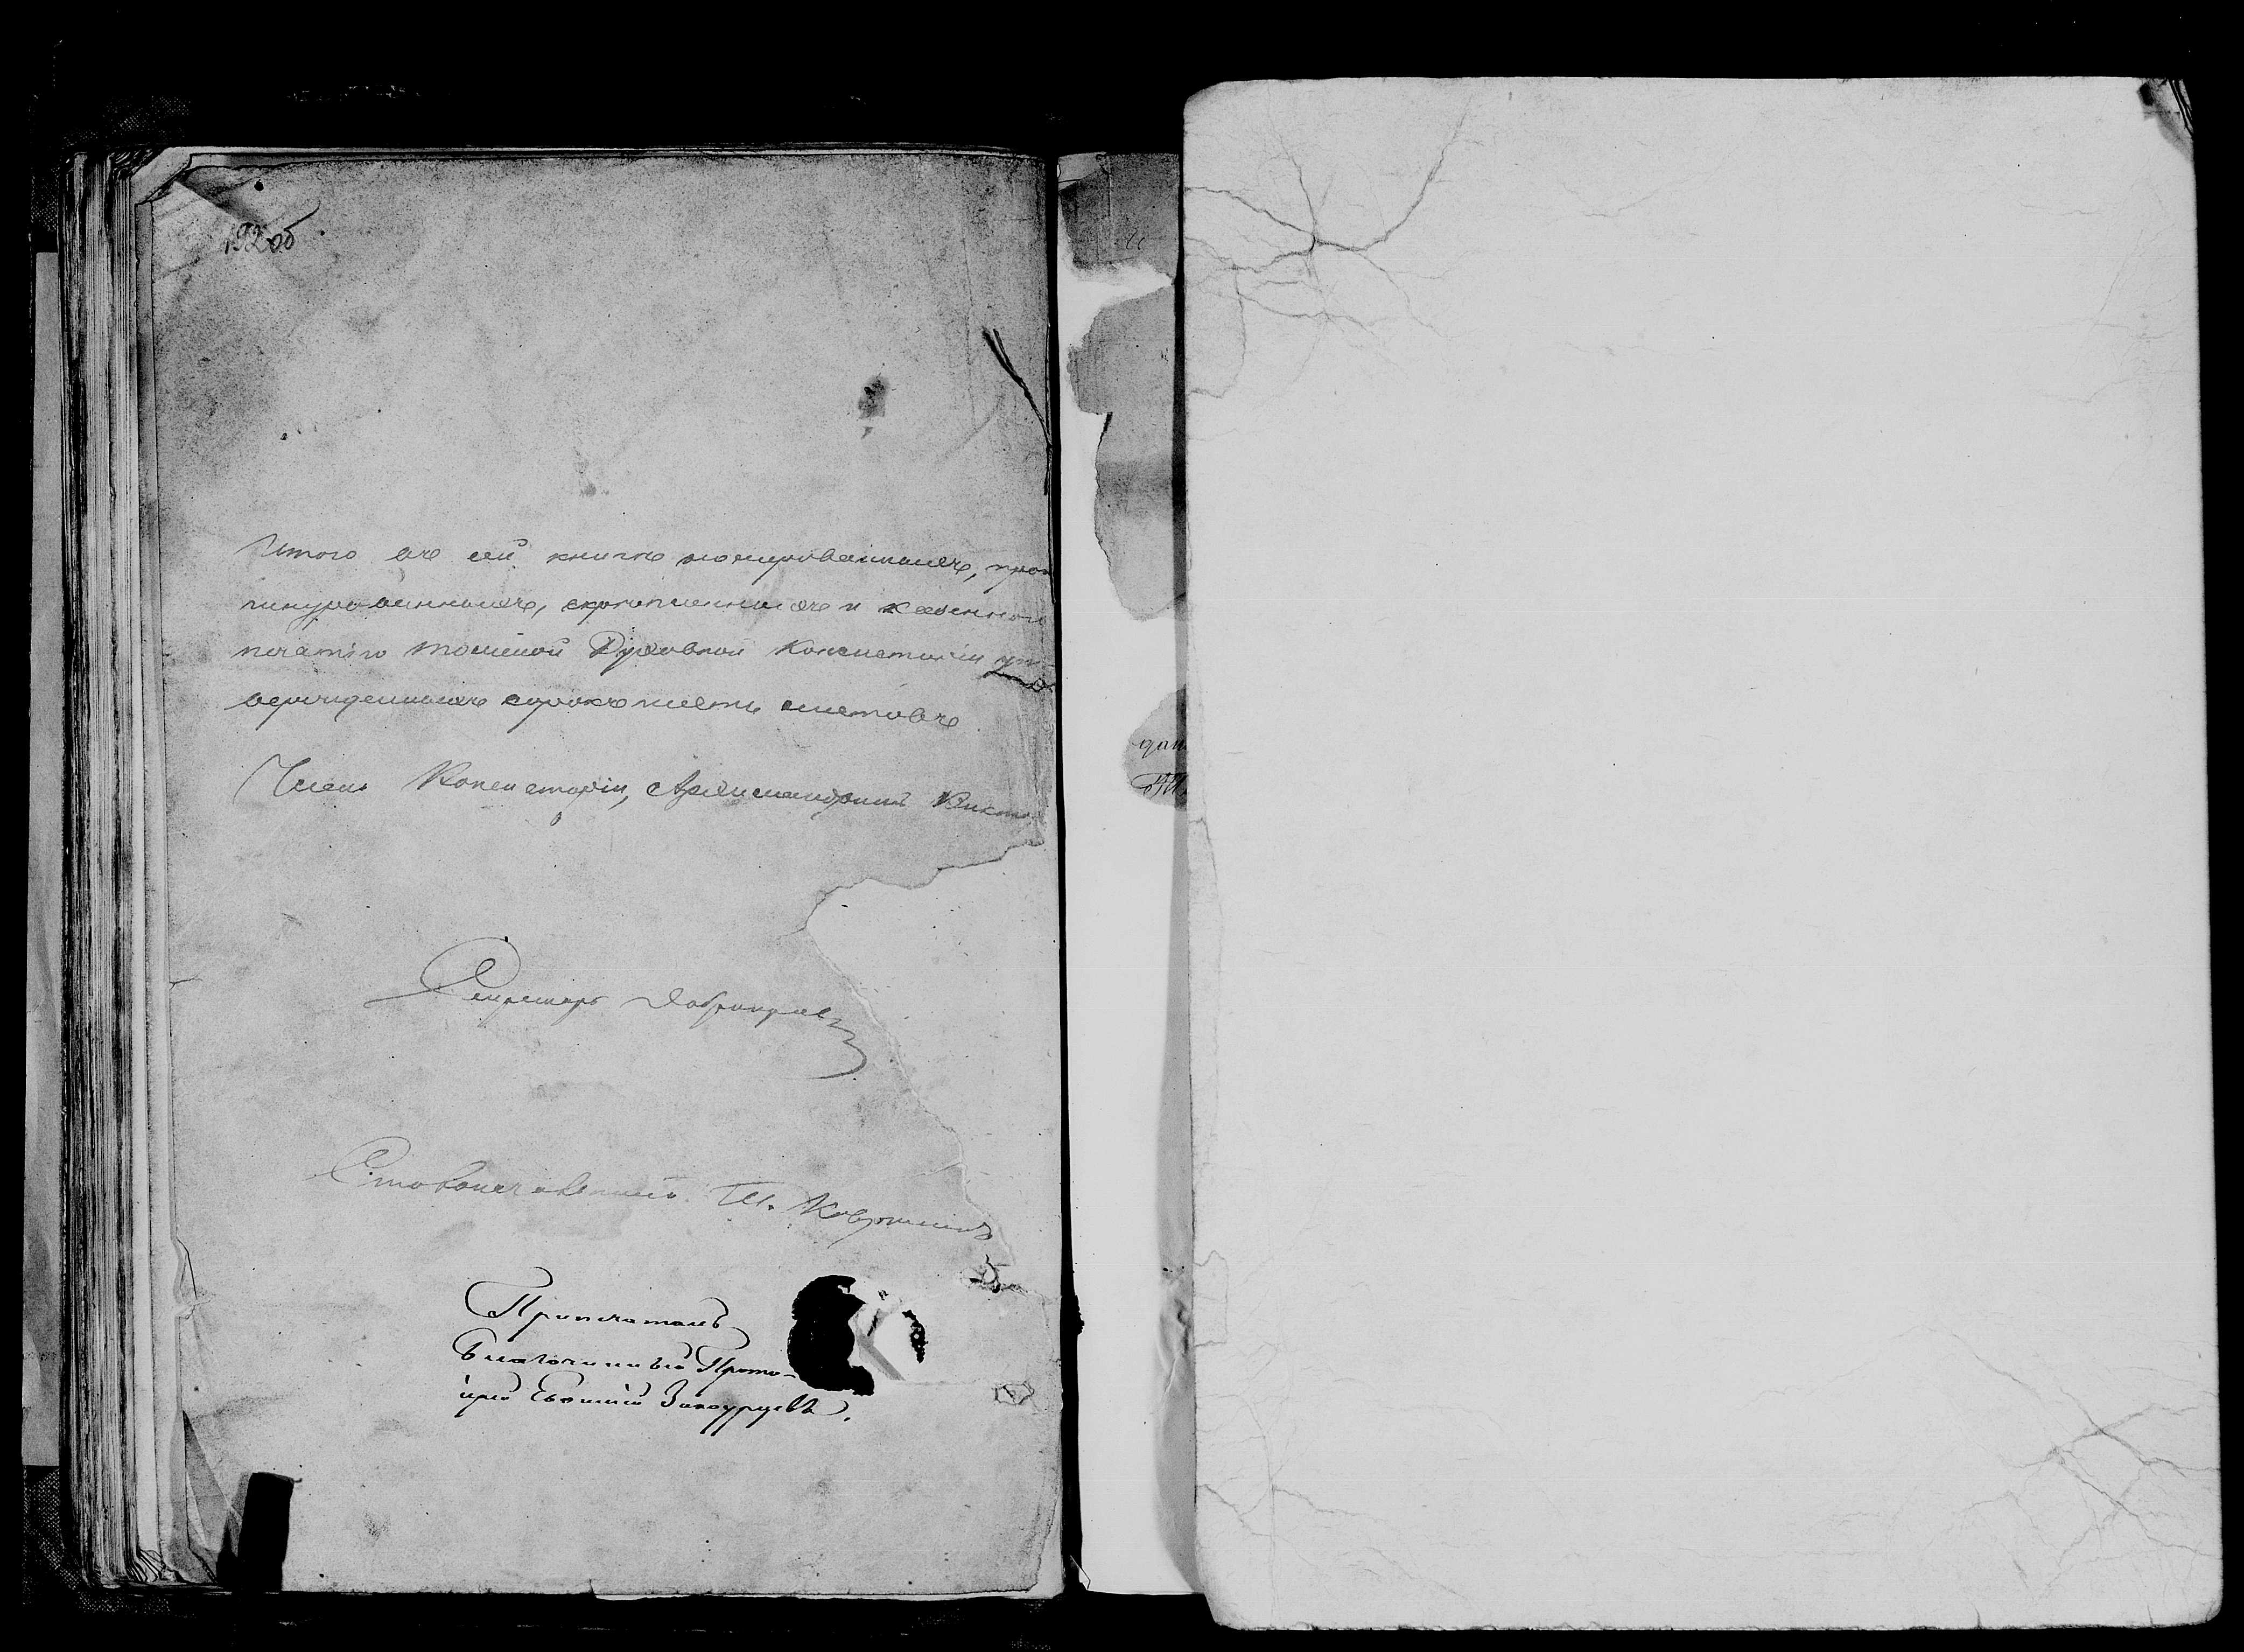 192 об
Итого въ сей книгѣ номерованныхъ, про
шнурованныхъ, скрѣпленныхъ и казенной
печатію Томской Духовной Консисторіи ут-
вержденныхъ сорокъ шесть листовъ
Членъ Консисторіи, Архимандритъ Викто
Секретарь
Столоначальникъ
Припечаталъ
Благочинный Прото-
іерей Евѳимій